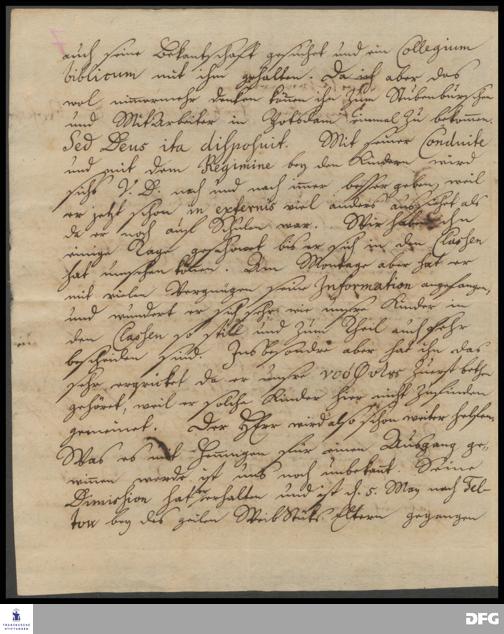 auch seine Bekantschafft gesuchet und ein Collegium
biblicum mit ihm gehalten. Da ich aber das
wol nimmermehr dencken können ihn zum Stubenburschen
und Mitarbeiter in Potsdam einmal zu bekommen.
Sed Deus ita disposuit. Mit seiner Conduite
und mit dem Regimine bey den Kindern wird
sichs nach und nach immer besser geben, weil
er jetzt schon in externis viel anders aussiehet als
da er noch auf Schulen war. Wir haben ihn
einige Tage geschonet bis er sich in den Classen
hat umsehen können. Am Montage aber hat er
mit vielen Vergnügen seine Information angefangen,
und wundert er sich sehr wie unsre Kinder in
den Classen so still und zum Theil auch sehr
bescheiden sind. Insbesondre aber hat ihn das
sehr erquicket da er unsre zuerst beten
gehöret, weil er solche Kinder hier nicht zu finden
gemeinet. Der HErr wird also schon weiter helfen.
Was es mit Henningen für einen Ausgang ge-
winnen werde ist uns noch unbekant. Seine
Dimission hat er erhalten und ist d. 5. May nach Tel-
tow bey des Eltern gegangen
TRANSKRIBUS
DFG